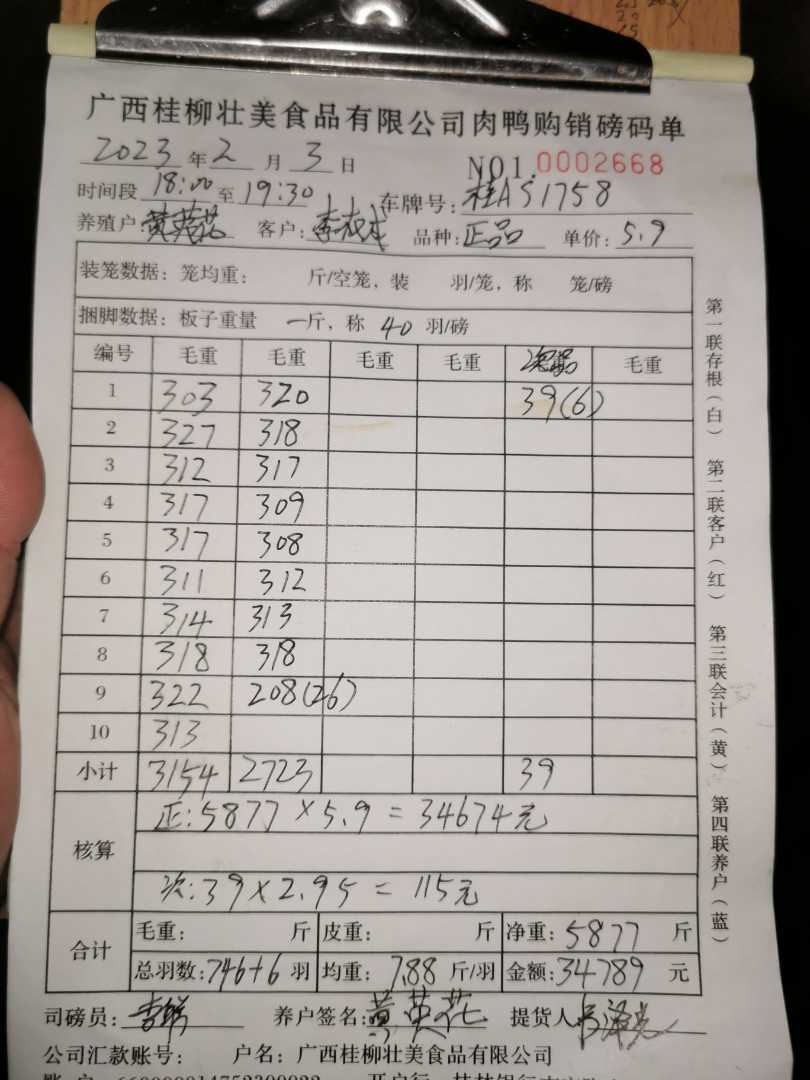 广西桂柳壮美食品有限公司肉鸭购销磅码单
2023年2月3日 NO1.0002668
时间段 18:00 至 19:30 车牌号: 桂AS1758
养殖户 黄英花 客户: 品种: 正品 单价: 5.9
装笼数据: 笼均重: 斤/空笼, 装 羽/笼, 称 笼/磅
捆脚数据: 板子重量 一斤, 称 40 羽/磅
编号 毛重 毛重 毛重 毛重 毛重
1 303 320 39(6)
2 327 318
3 312 317
4 317 309
5 317 308
6 311 312
7 314 313
8 318 318
9 322 208(26)
10 313
小计 3154 2723 39
核算
正: 5877 × 5.9 = 34674元
次: 39 × 2.95 = 115元
合计
毛重: 斤 皮重: 斤 净重: 5877 斤
总羽数: 746+6 羽 均重: 7.88 斤/羽 金额: 34789 元
司磅员: 养户签名: 黄英花 提货人
公司汇款账号: 户名: 广西桂柳壮美食品有限公司
第一联存根(白) 第二联客户(红) 第三联会计(黄) 第四联养户(蓝)